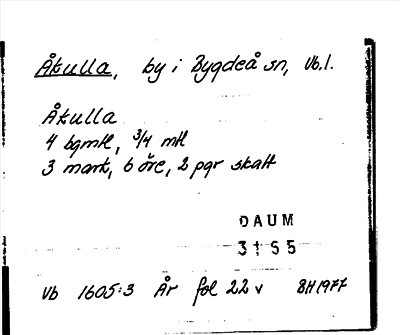 Åkulla, by i Bygdeå sn, Vb.l.
Åkulla
4 bgmtl, 3/4 mtl
3 mark, 6 öre, 2 pgr skatt
DAUM
3195
Vb 1605:3 År fol 22 v BH1977